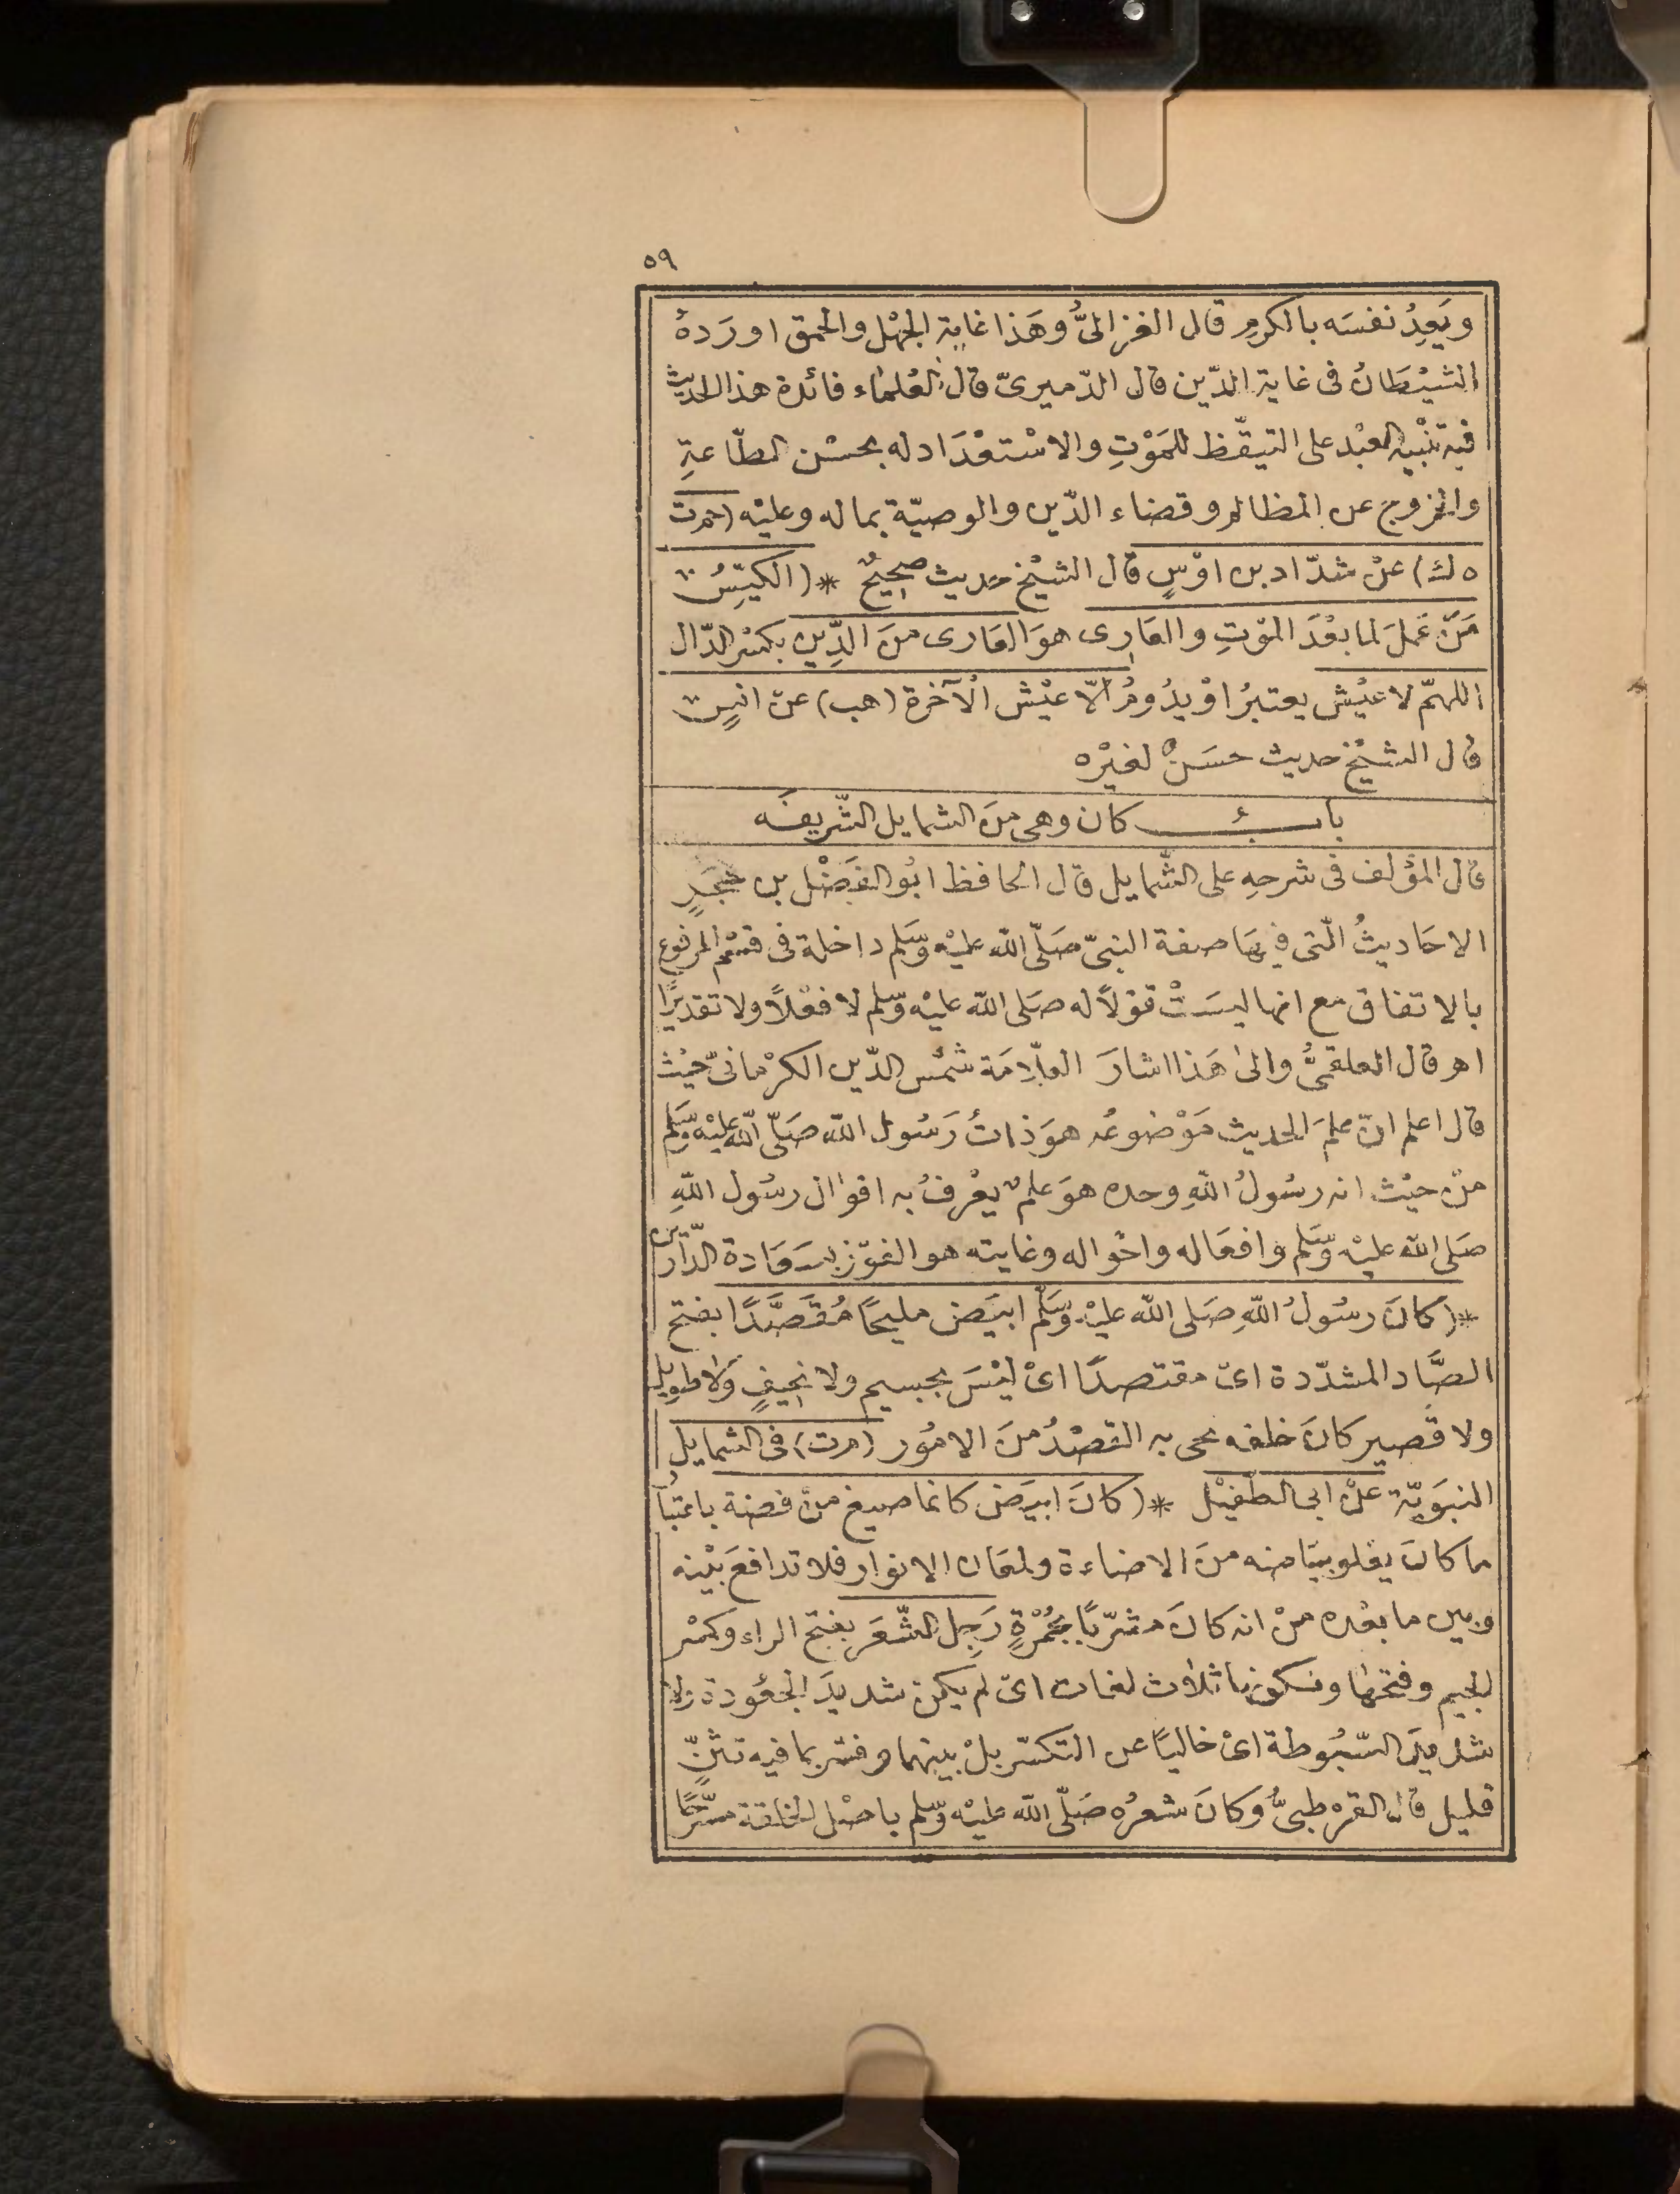 ٥٩
ويَعِدُ نفسَه بالكرمِ قال الغزالىُّ وهَذا غاية الجهْل والحمق اورَدهُ
الشيْطَانُ فى غاية الدّين قال الدّميرىّ قال العُلمٰاء فائدة هذا الحديث
فيه تنْبيه العبْد على التيقّظ للمَوْتِ والاسْتعْدَاد له بحسْن الطّاعةِ
والخروج عن المظالم وقضاء الدّين والوصيّة بماله وعليْه (حم ت
ه ك) عنْ شدّاد بن اوْسٍ قال الشيْخ حديث صحيحٌ * (الكيّسُ
مَنْ عَملَ لما بعْدَ الموْتِ والعَارِى هوَ العَارى منَ الدِّين بكسْر الدّال
اللهمّ لا عيْش يعتبرُ اوْ يدُومُ الّا عيْش الْآخرة (هب) عنْ انسٍ
قال الشيْخ حديث حسَنٌ لغيْره
بابُ كان وهى منَ الشمايل الشّريفَه
قال المؤلف فى شرحِه على الشّمايل قال الحافظ ابُو الفَضْل بن حجَرٍ
الاحَاديثُ الّتى فيهَا صفة النبىّ صَلّى الله عليْه وسَّلم داخلة فى قسْم المرفوع
بالاتفاق مع انها ليسَتْ قوْلًا له صَلى الله عليْه وسّلم لا فعْلًا ولا تقديرًا
اهـ قال العلقمىُّ والىٰ هَذا اشارَ العلّامَة شمْس الدّين الكرْمانىّ حيْث
قال اعلم انّ علمَ الحديث مَوْضوعُه هوَ ذاتُ رَسُول الله صَلّى الله عليْه وسَّلم
منْ حيْث انه رسُولُ اللهِ وحده هوَ علمٌ يعْرفُ به اقوٰال رسُول اللهِ
صَلى الله عليْه وسَّلم وافعَاله واحْواله وغايته هو الفوْز بسَعَادة الدّارين
* (كانَ رسُولُ اللهِ صَلى الله عليْه وسَّلم ابيَض مليحًا مُقَصَّدًا بفتح
الصَّاد المشدّدة اىْ مقتصدًا اىْ ليْسَ بجسيم ولا نحيفٍ ولا طويل
ولا قصير كانَ خلقه نحى به القصْدُ منَ الامُور (م ت) فى الشمايل
النبَويّة عنْ ابى الطفيْل * (كانَ ابيَض كانما صيغ منْ فضة باعتبار
ما كانَ يعْلو بيَاضه منَ الاضاءة ولمعَان الانوار فلا تدافعَ بيْنه
وبين ما بعْده منْ انه كانَ مشرّبًا بحُمْرَةٍ رَجِل الشّعَر بفتح الراء وكسْر
الجيم وفتحهَا وسكونها ثلاث لغات اىْ لم يكن شديدَ الجعُودة ولا
شديدَ السّبُوطة اىْ خاليًا عن التكسّر بلْ بينهما وفسّر بما فيه تثنٍّ
قليل قال القرطبىُّ وكانَ شعرُه صَلّى الله عليْه وسّلم باصْل الخلقة مسرّحًا